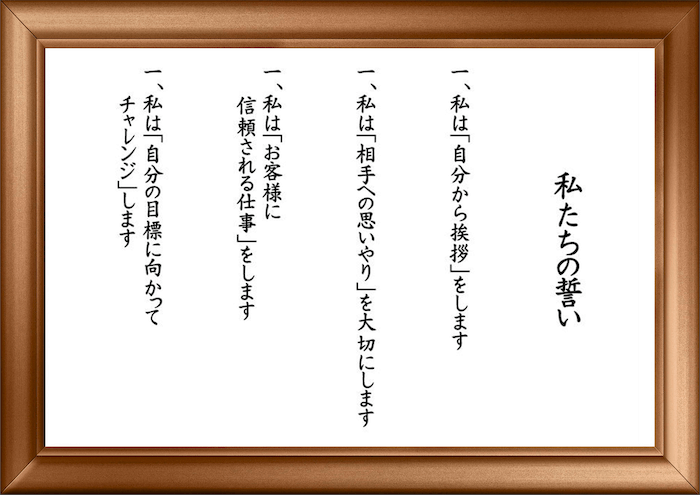 私たちの誓い
一、私は「自分から挨拶」をします
一、私は「相手への思いやり」を大切にします
一、私は「お客様に
信頼される仕事」をします
一、私は「自分の目標に向かって
チャレンジ」します